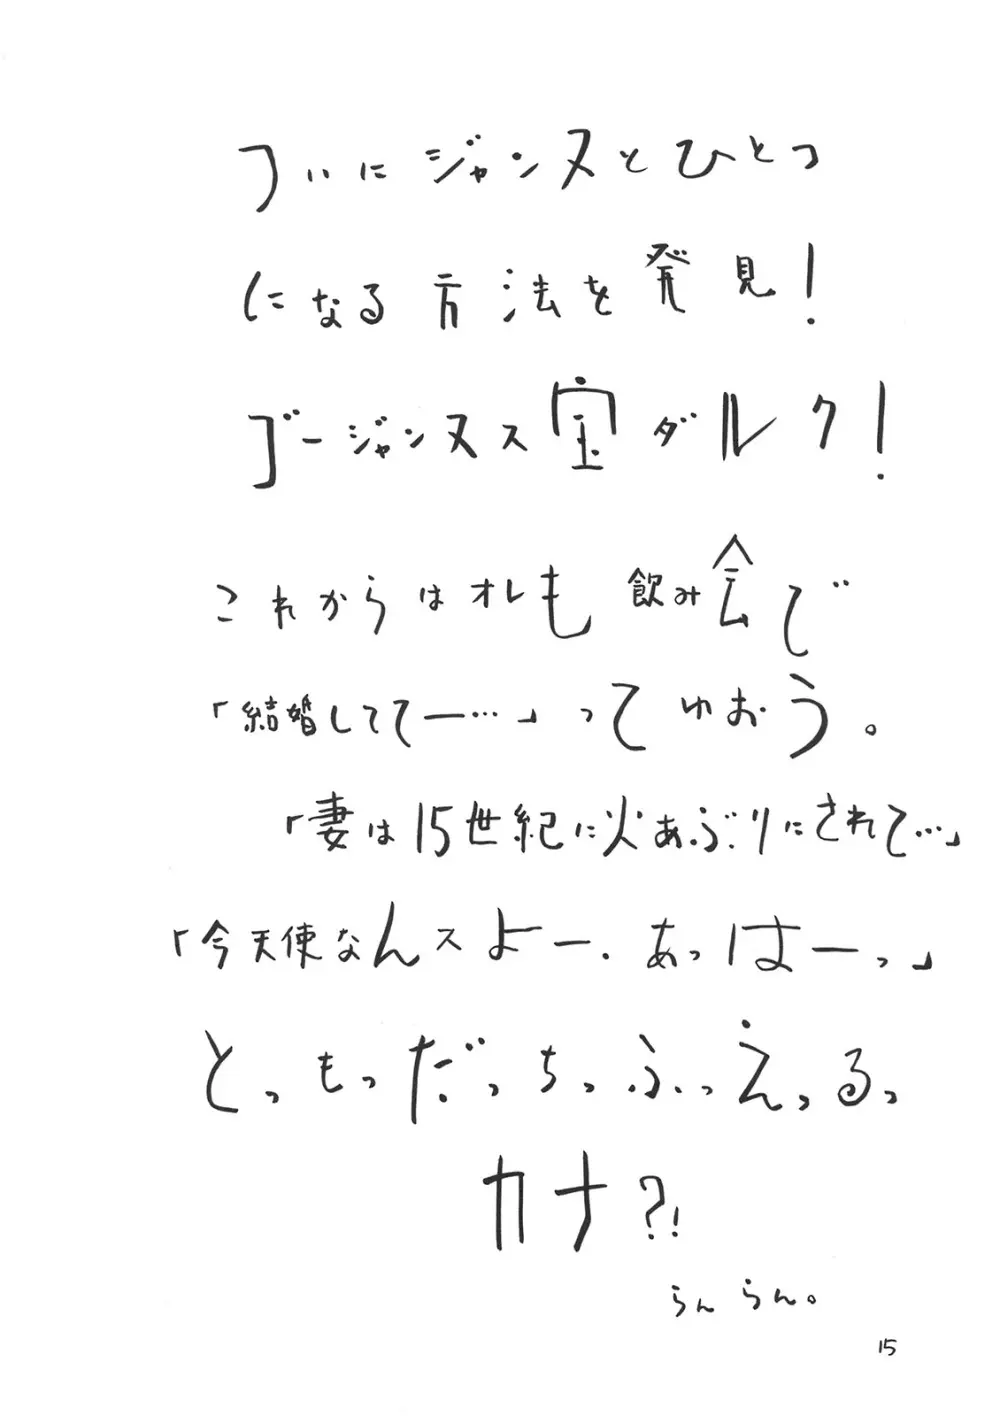 ついにジャンヌとひとつ
になる方法を発見!
ゴージャンヌス宝ダルク!
これからはオレも飲み会で
「結婚しててー…」ってゆおう。
「妻は15世紀に火あぶりにされて…」
「今天使なんスよー、あっはーっ」
とっもっだっちっふっえっるっ
カナ?!
らんらん。
15